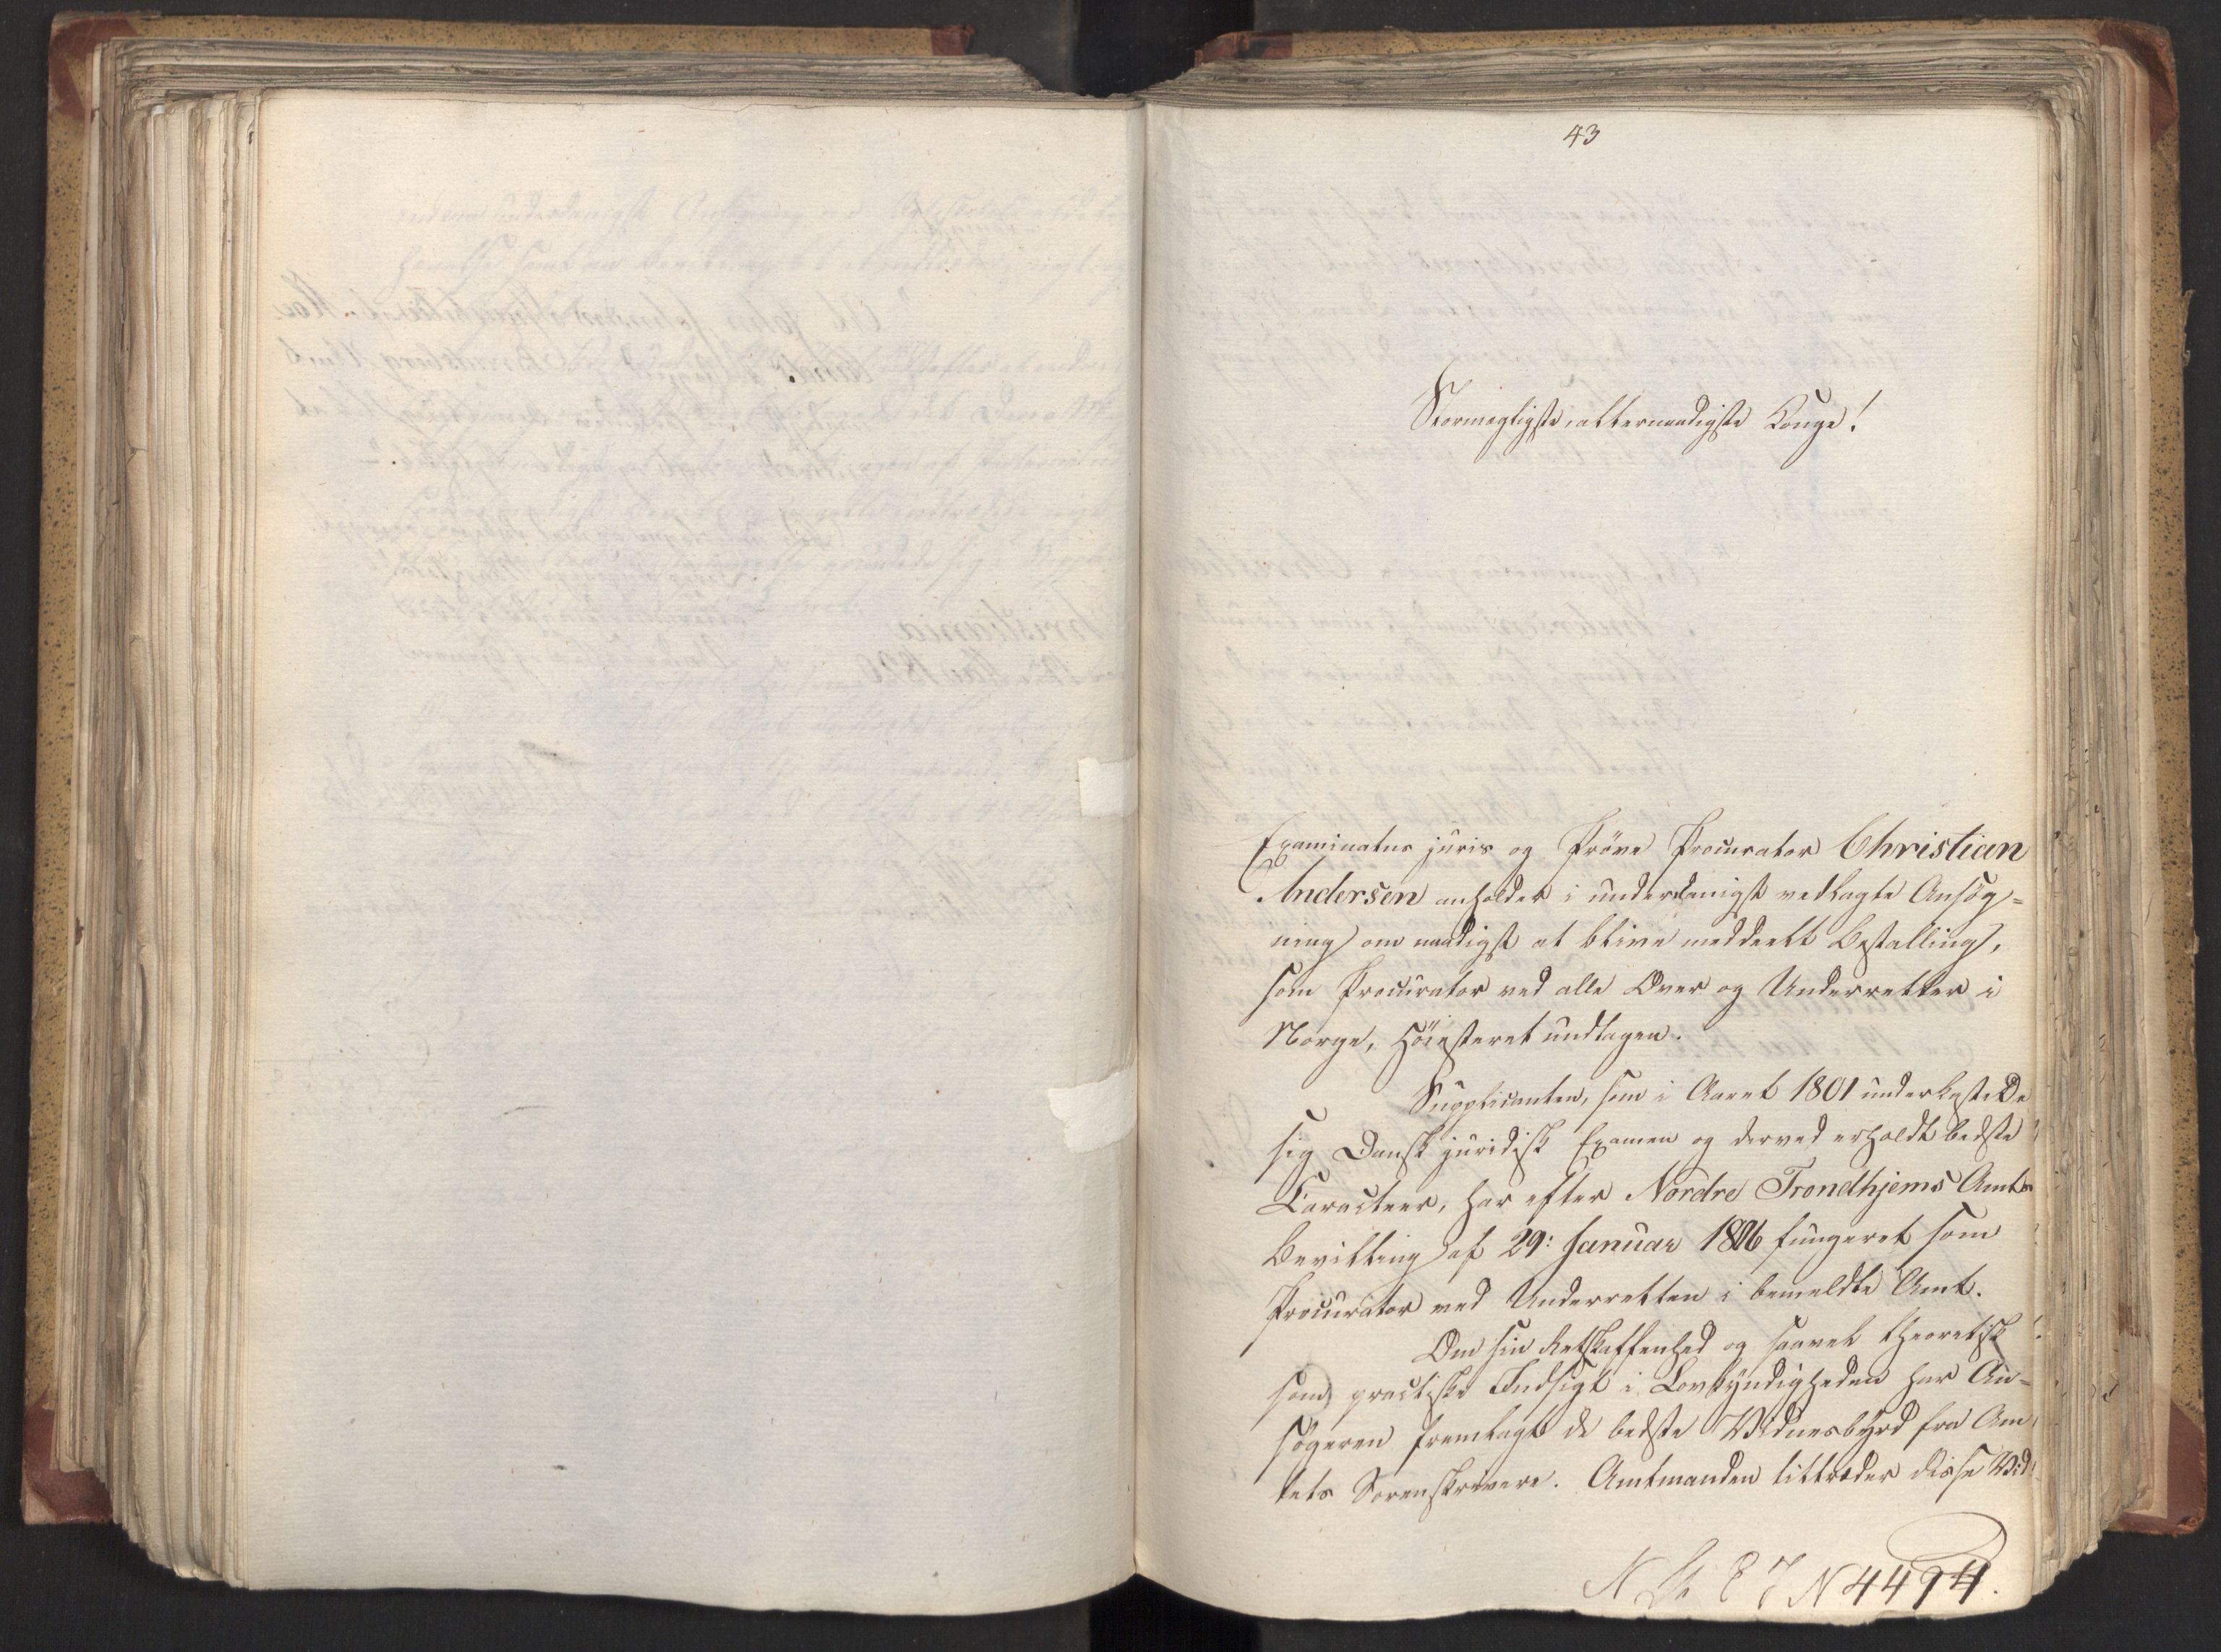 43
Stormægtigste, allernaadigste Konge!
Examinatus juris og Prøve Procurator Christian
Andersen anholder i underdanigst vedlagte Ansøg=
ning om naadigst at blive meddeelt Bestalling,
som Procurator ved alle Over og Underretter i
Norge, Høiesteret undtagen.
Supplicanten, som i Aaret 1801 underkastede
sig Dansk juridisk Examen og derved erholdt bedste
Caracteer, har efter Nordre Trondhjems Amts
Bevilling af 29: Januar 1816 fungeret som
Procurator ved Underretten i bemeldte Amt.
Om sin Retskaffenhed og saavel theoretisk
som practiske Indsigt i Lovkyndigheden har An=
søgeren fremlagt de bedste Vidnesbyrd fra Am
tets Sorenskrivere. Amtmanden tiltræder disse Vid
N 4494.